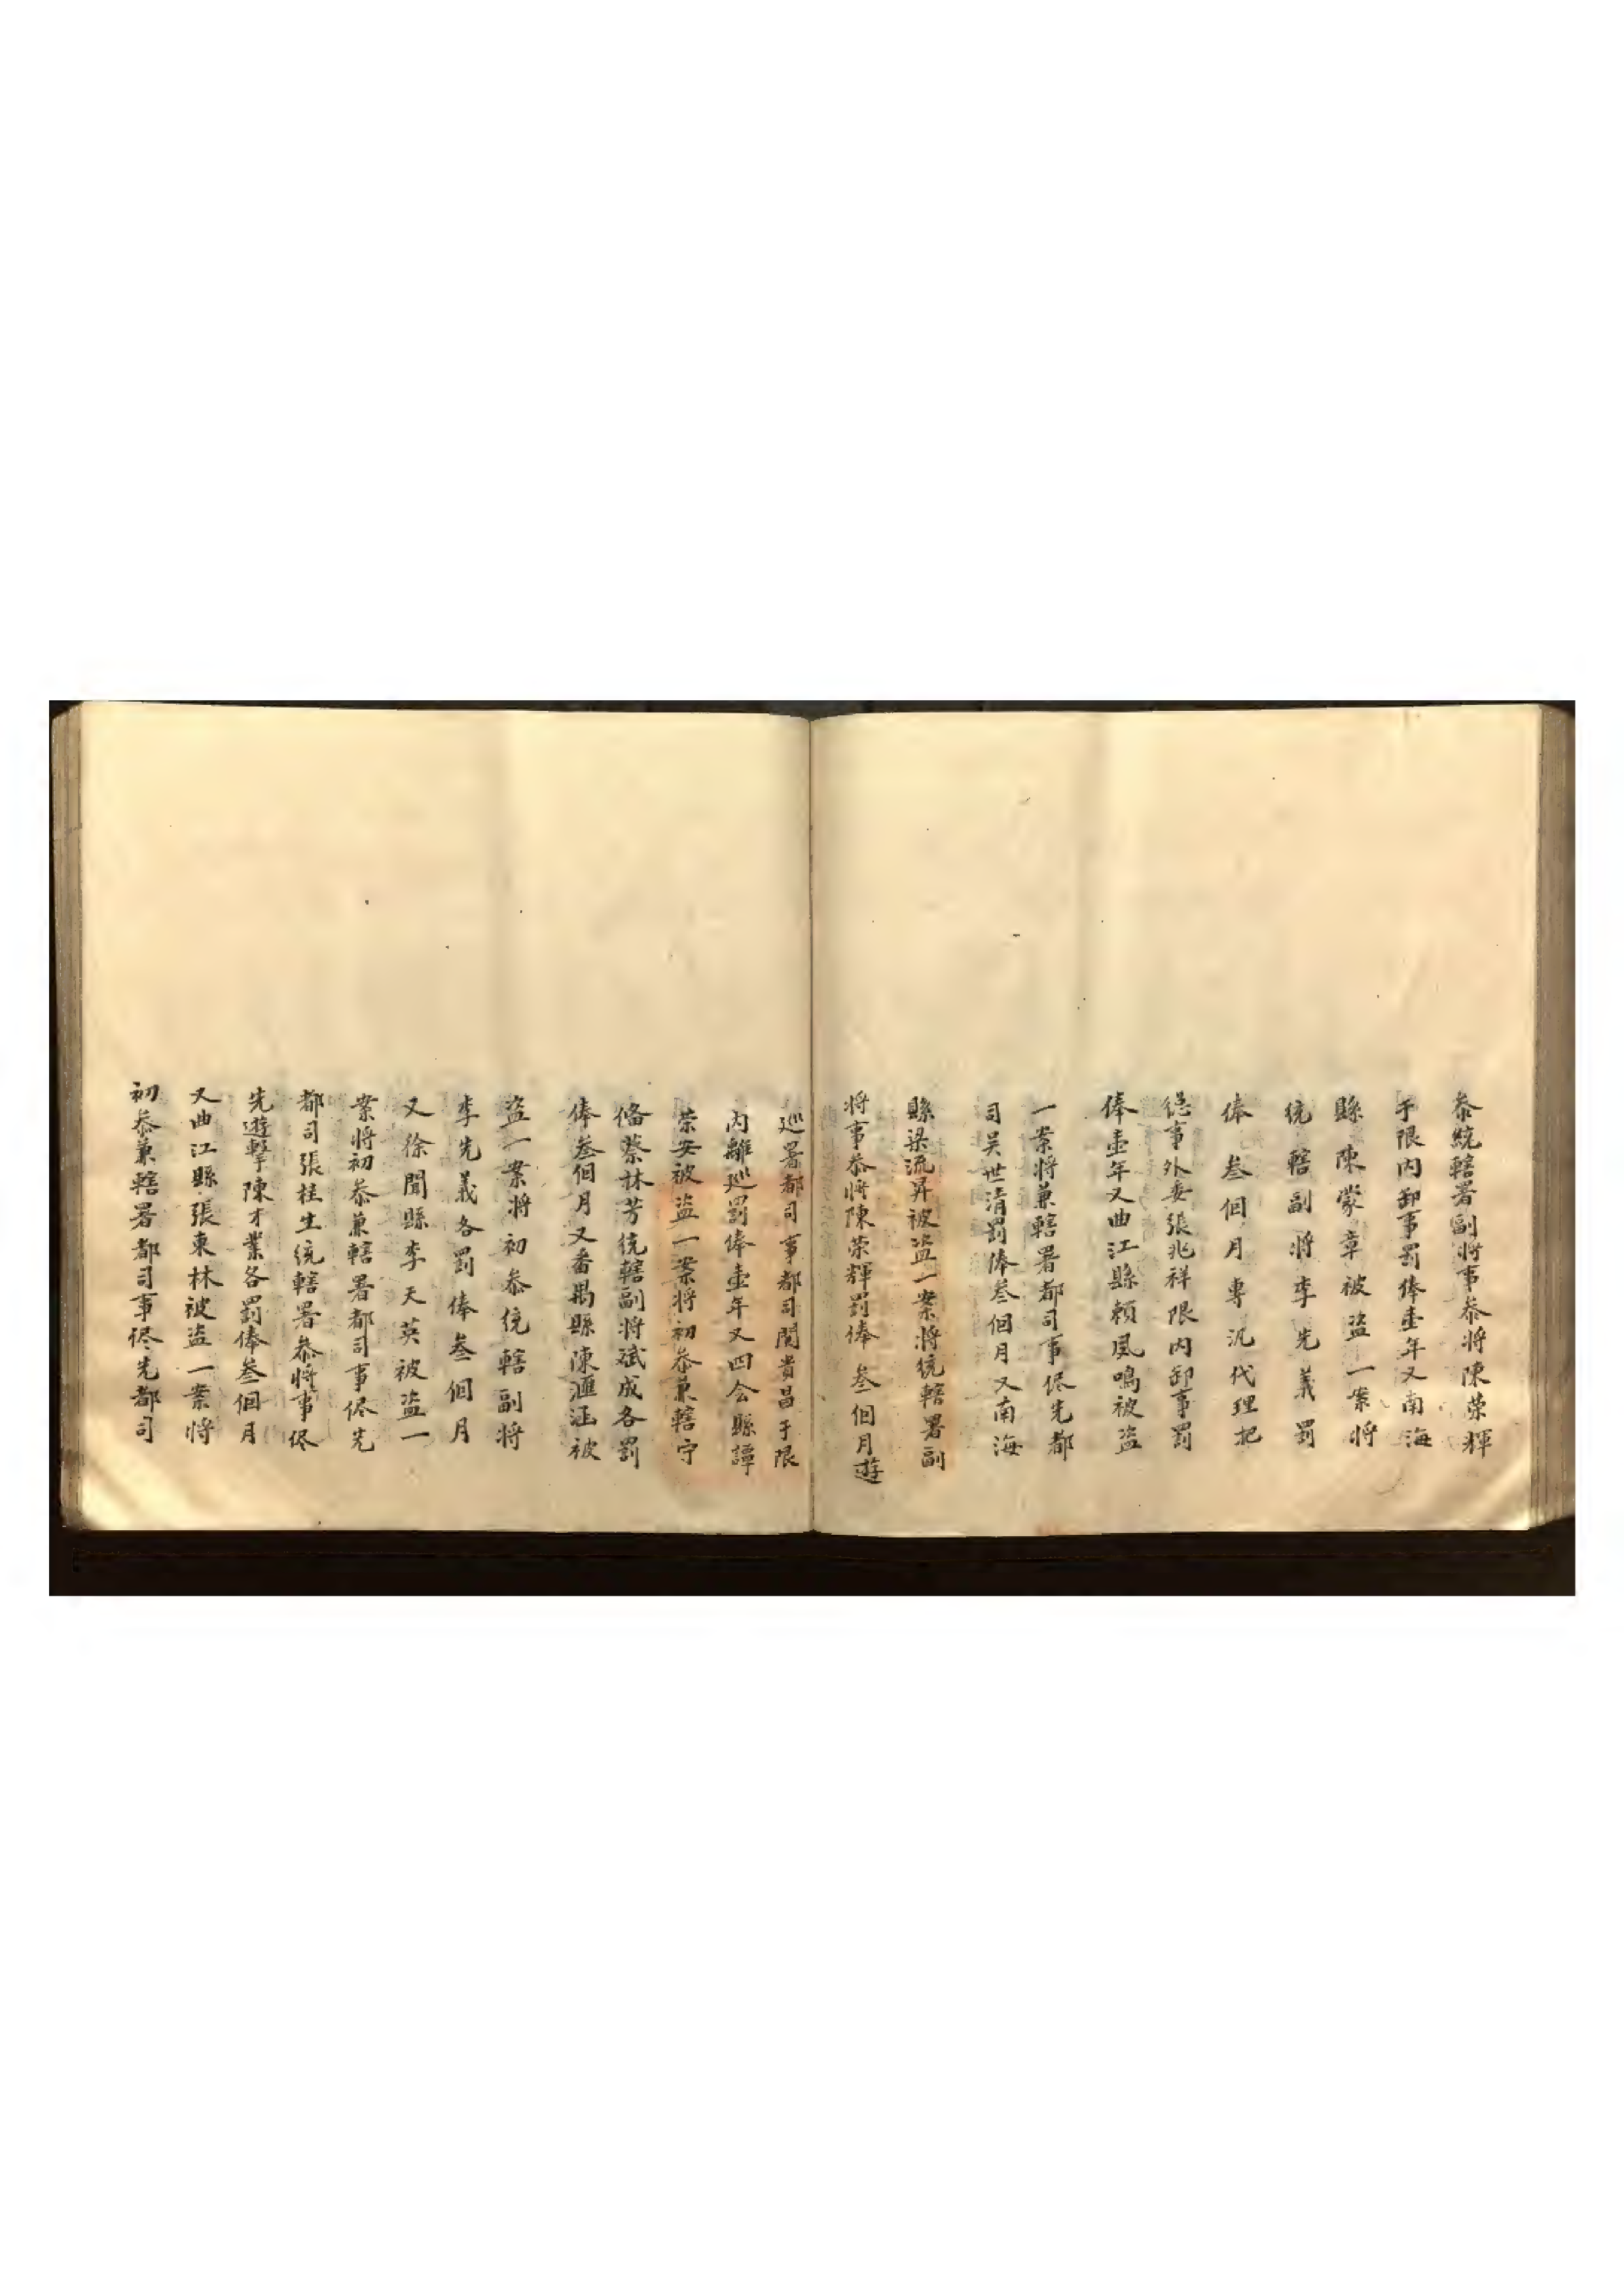 叅統轄署副將事叅將陳荣輝
于限內卸事罰俸壹年又南海
縣陳蒙章被盜一案將
統轄副將李先義罰
俸叁個月專汛代理把
總事外委張兆祥限內卸事罰
俸壹年又曲江縣賴風鳴被盜
一案將兼轄署都司事侭先都
司吴世清罰俸叁個月又南海
縣梁流昇被盜一案將統轄署副
將事叅將陳荣輝罰俸叁個月遊
巡署都司事都司閔貴昌于限
內離巡罰俸壹年又四会縣譚
荣安被盜一案將初叅兼轄守
俻蔡林芳统轄副將斌成各罰
俸叁個月又番禺縣陳滙涵被
盜一案將初叅统轄副將
李先義各罰俸叁個月
又徐聞縣李天英被盜一
案將初叅兼轄署都司事侭先
都司張桂生统轄署叅將事侭
先遊擊陳才業各罰俸叁個月
又曲江縣張東林被盜一案將
初叅兼轄署都司事侭先都司